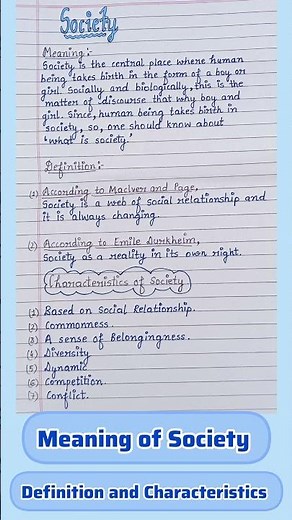 Society
Meaning:-
Society is the central place where human
being takes birth in the form of a boy or
girl socially and biologically, this is the
matter of discourse that why boy and
girl. Since, human being takes birth in
society, so, one should know about
'what is society.'
Definition:-
(1) According to MacIver and Page,
Society is a web of social relationship and
it is always changing.
(2) According to Emile Durkheim,
Society as a reality in its own right.
Characteristics of Society
(1) Based on Social Relationship.
(2) Commonness.
(3) A sense of Belongingness.
(4) Diversity
(5) Dynamic
(6) Competition.
(7) Conflict.
Meaning of Society
Definition and Characteristics